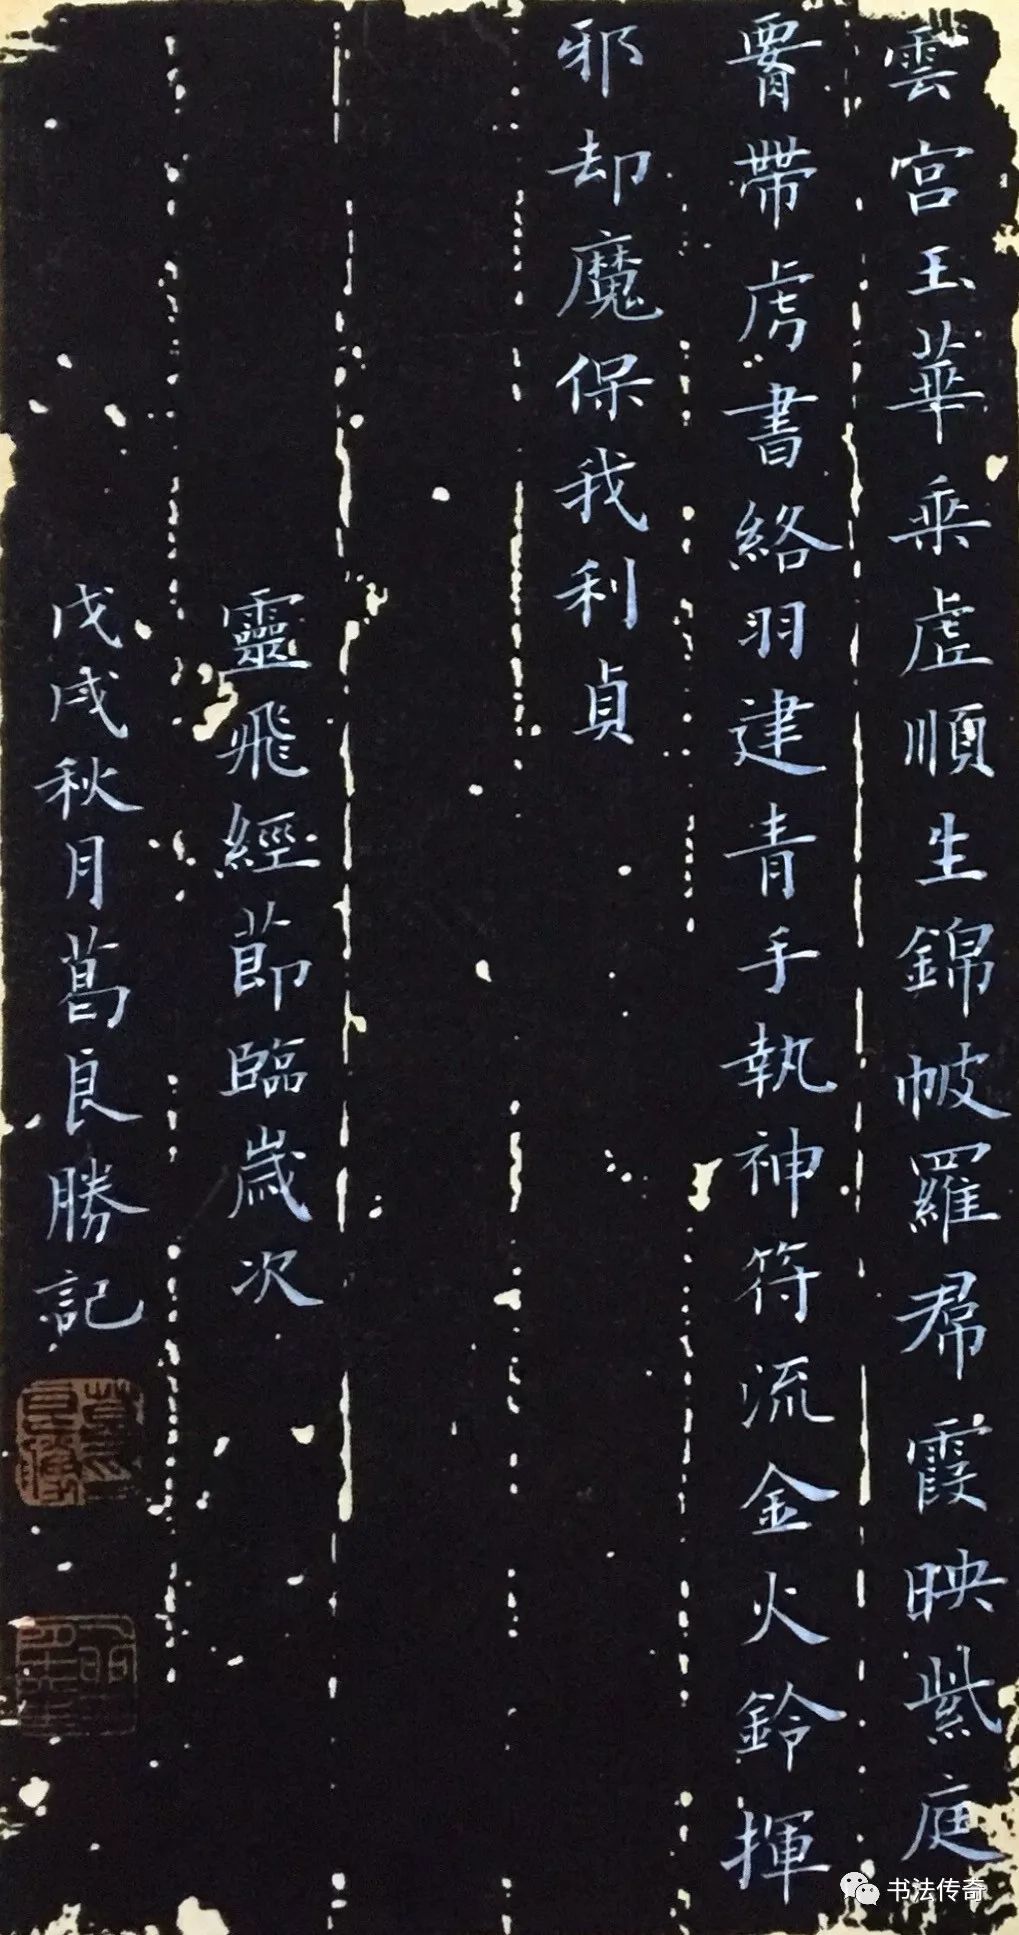 雲宮玉華乗虛順生錦帔羅帬霞映紫庭
腰帶虎書絡羽建青手執神符流金火鈴揮
邪却魔保我利貞
靈飛經節臨歲次
戊戌秋月葛良勝記
书法传奇